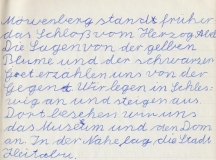 Möwenberg stand früher
das Schloß vom Herzog Adolf
Die Sagen von der gelben
Blume und der schwarzen
Gret erzählen uns von der
Gegend. Wir legen in Schles-
wig an und steigen aus.
Dort besehen wir uns
das Museum und den Dom
an. In der Nähe lag die Stadt
Heitabu.